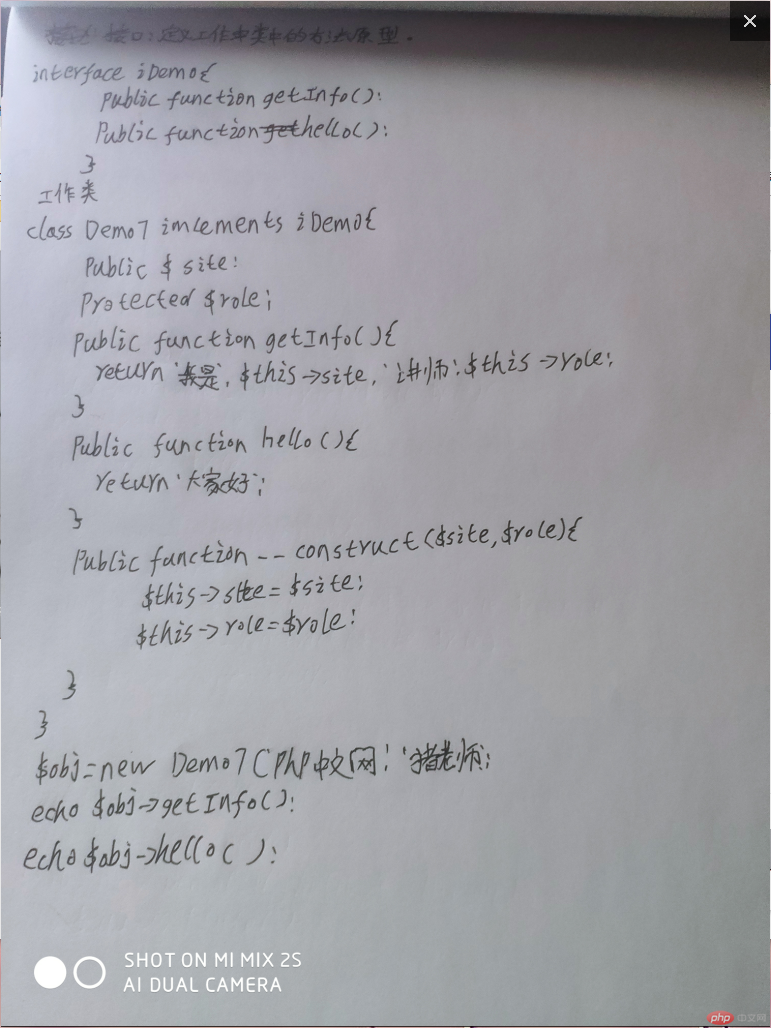 接口:定义工作中类中的方法原型.
interface iDemo{
Public function getInfo():
Public function hello():
}
工作类
class Demo7 imlements iDemo{
Public $ site:
Protected $role;
Public function getInfo(){
return '我是', $this->site, '讲师':$this->role:
}
Public function hello(){
return '大家好';
}
Public function -- construct($site,$role){
$this->site=$site:
$this->role=$role:
}
}
$obj=new Demo7(PhP中文网!'猪老师;
echo $obj->getInfo():
echo $obj->hello( ):
SHOT ON MI MIX 2S
AI DUAL CAMERA
php 中文网